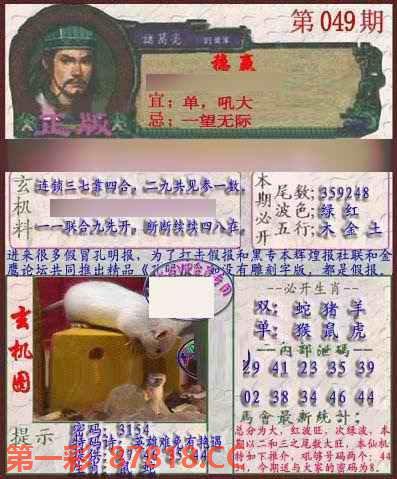 第049期
諸葛亮
稳赢
宜；单，吼大
忌；一望无际
正版
玄机料
连锁三七靠四合，二九共见参一数。
一一联合九先开，断断续续四八在。
本期必开
尾数;359248
波色;绿 红
五行;木 金 土
进来很多假冒孔明报，为了打击假报和黑专本辉煌报社联和金
鹰论坛共同推出精品《孔明
没有雕刻字版，都是假报。
玄机图
--必开生肖--
双: 蛇 猪 羊
单: 猴 鼠 虎
--内部泄码--
29 41 23 35 39
02 38 34 46 44
馬會最新統計:
总分为大，红波旺，次绿波，本
期以二和三之尾数大旺，本仙机
特如下推介，吼够号码两个：44
，今期送与大家的密码为8。
提示
密码: 3154
特码诗: 英雄难免有挫遇
第一彩 87818.CC